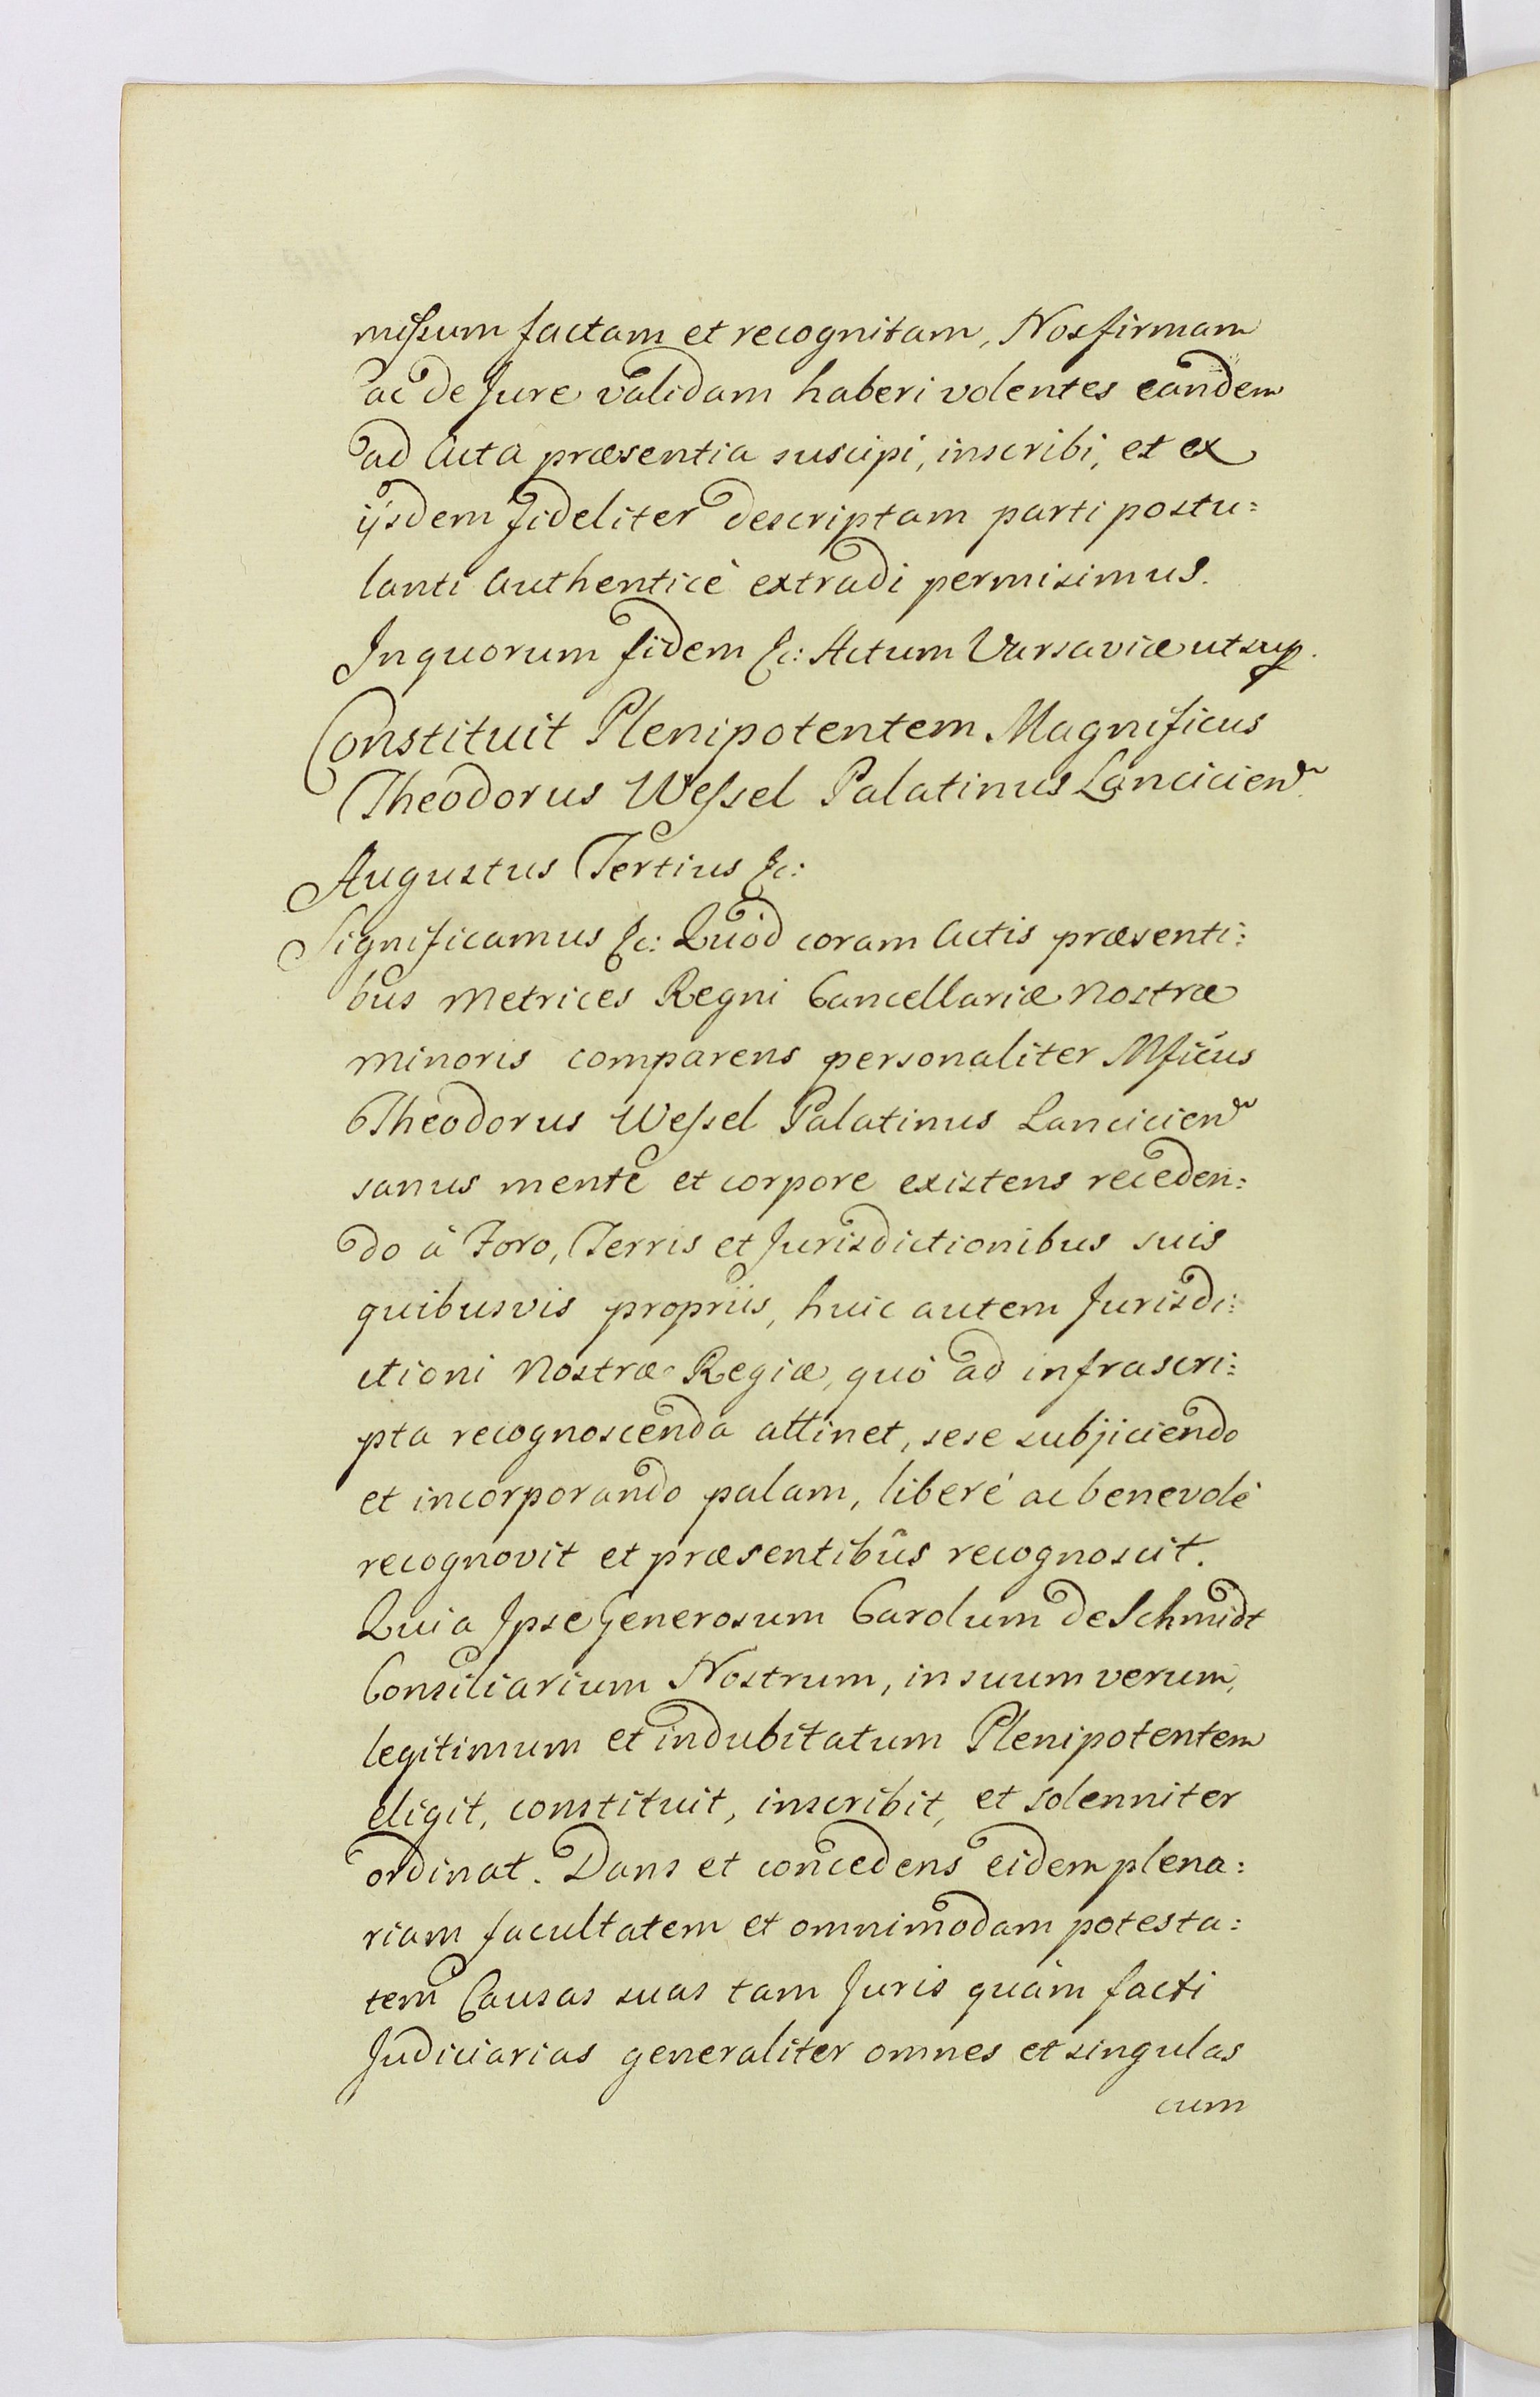 missum factam et recognitam, Nos firmam
ac de Jure validam haberi volentes eandem
ad Acta præsentia suscipi, inscribi, et ex
ijsdem fideliter descriptam parti postu:
lanti Authenticè extradi permisimus.
In quorum fidem &c: Actum Varsaviæ ut sup.
Constituit Plenipotentem Magnificus
Theodorus Wessel Palatinus Lancicien
Augustus Tertius &c:
Significamus &c: Quòd coram Actis præsenti:
bus Metrices Regni Cancellariæ Nostræ
Minoris comparens personaliter Mficus
Theodorus Wessel Palatinus Lancicien
sanus mente et corpore existens receden:
do à Foro, Terris et Jurisdictionibus suis
quibusvis propriis, huic autem Jurisdi:
ctioni Nostræ Regiæ, quò ad infrascri:
pta recognoscenda attinet, sese subjiciendo
et incorporando palam, liberè ac benevolè
recognovit et præsentibus recognoscit.
Quia Ipse Generosum Carolum de Schmidt
Consiliarium Nostrum, in suum verum,
legitimum et indubitatum Plenipotentem
eligit, constituit, inscribit, et solenniter
ordinat. Dans et concedens eidem plena:
riam facultatem et omnimodam potesta:
tem Causas suas tam Juris quàm facti
Judiciarias generaliter omnes et singulas
cum